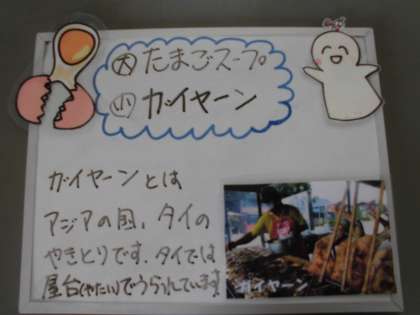 大 たまごスープ
小 ガイヤーン
ガイヤーンとは
アジアの国、タイの
やきとりです。タイでは
屋台(やたい)でうられています。
ガイヤーン